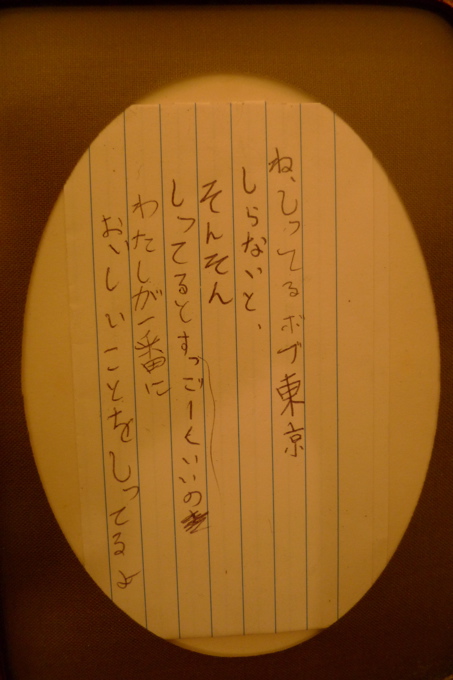 ね、しってるボブ東京
しらないと、
そんそん
しってるとすっごーくいいの
わたしが一番に
おいしいことをしってるよ